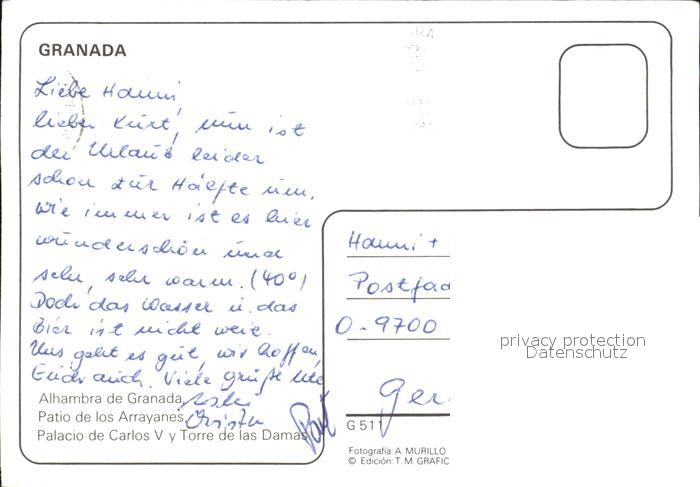 GRANADA
Liebe Hanni,
lieber Kurt, nun ist
der Urlaub leider
schon zur Hälfte um.
Wie immer ist es hier
wunderschön und
sehr, sehr warm. (40°)
Doch das Wasser u. das
Bier ist nicht weit.
Uns geht es gut, wir hoffen,
Euch auch. Viele Grüße
Alhambra de Granada
Patio de los Arrayanes
Palacio de Carlos V y Torre de las Damas
Hanni +
Postfac
O-9700
Ger
privacy protection
Datenschutz
G 511
Fotografía: A. MURILLO
© Edición: T. M. GRAFIC